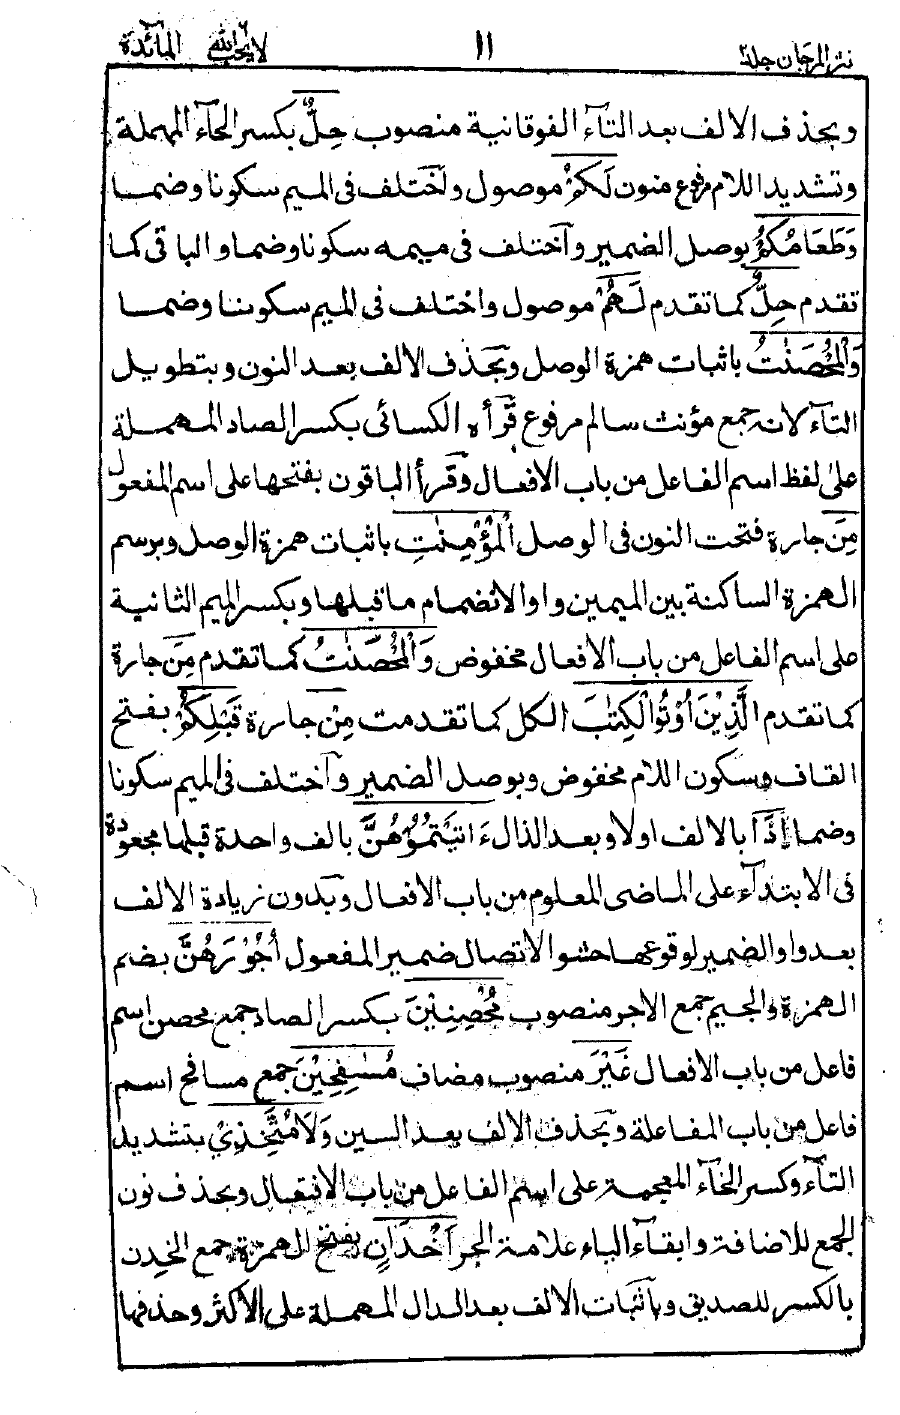 نثر المرجان جلد٢ ١١ لا يحب الله المآئدة
وبحذف الالف بعد التآء الفوقانية منصوب حِلٌّ بكسر الحآء المهملة
وتشديد اللام مرفوع منون لَكُمْ موصول واختلف فى الميم سكونا وضما
وَطَعَامُكُمْ بوصل الضمير واختلف فى ميمه سكونا وضما والباقى كما
تقدم حِلٌّ كما تقدم لَهُمْ موصول واختلف فى الميم سكونا وضما
وَالْمُحْصَنٰتُ باثبات همزة الوصل وبحذف الالف بعد النون وبتطويل
التآء لانه جمع مؤنث سالم مرفوع قرأه الكسائى بكسر الصاد المهملة
على لفظ اسم الفاعل من باب الافعال وقرأ الباقون بفتحها على اسم المفعول
مِنَ جارة فتحت النون فى الوصل الْمُؤْمِنٰتِ باثبات همزة الوصل وبرسم
الهمزة الساكنة بين الميمين واوا لانضمام ما قبلها وبكسر الميم الثانية
على اسم الفاعل من باب الافعال مخفوض وَالْمُحْصَنٰتُ كما تقدم مِنَ جارة
كما تقدم الَّذِيْنَ اُوْتُوا الْكِتٰبَ الكل كما تقدمت مِنْ جارة قَبْلِكُمْ بفتح
القاف وسكون اللام مخفوض وبوصل الضمير واختلف فى الميم سكونا
وضما اِذَآ بالالف اولا وبعد الذال ءَاتَيْتُمُوْهُنَّ بالف واحدة قبلها مجعودة
فى الابتدآء على الماضى المعلوم من باب الافعال وبدون زيادة الالف
بعد واو الضمير لوقوعها حشوا لاتصال ضمير المفعول اُجُوْرَهُنَّ بضم
الهمزة والجيم جمع الاجر منصوب مُحْصِنِيْنَ بكسر الصاد جمع محصن اسم
فاعل من باب الافعال غَيْرَ منصوب مضاف مُسٰفِحِيْنَ جمع مسافح اسم
فاعل من باب المفاعلة وبحذف الالف بعد السين وَلَا مُتَّخِذِيْ بتشديد
التآء وكسر الخآء المعجمة على اسم الفاعل من باب الافتعال وبحذف نون
الجمع للاضافة وابقآء الياء علامة الجر اَخْدَانٍ بفتح الهمزة جمع الخدن
بالكسر للصديق وباثبات الالف بعد الدال المهملة على الاكثر وحذفها